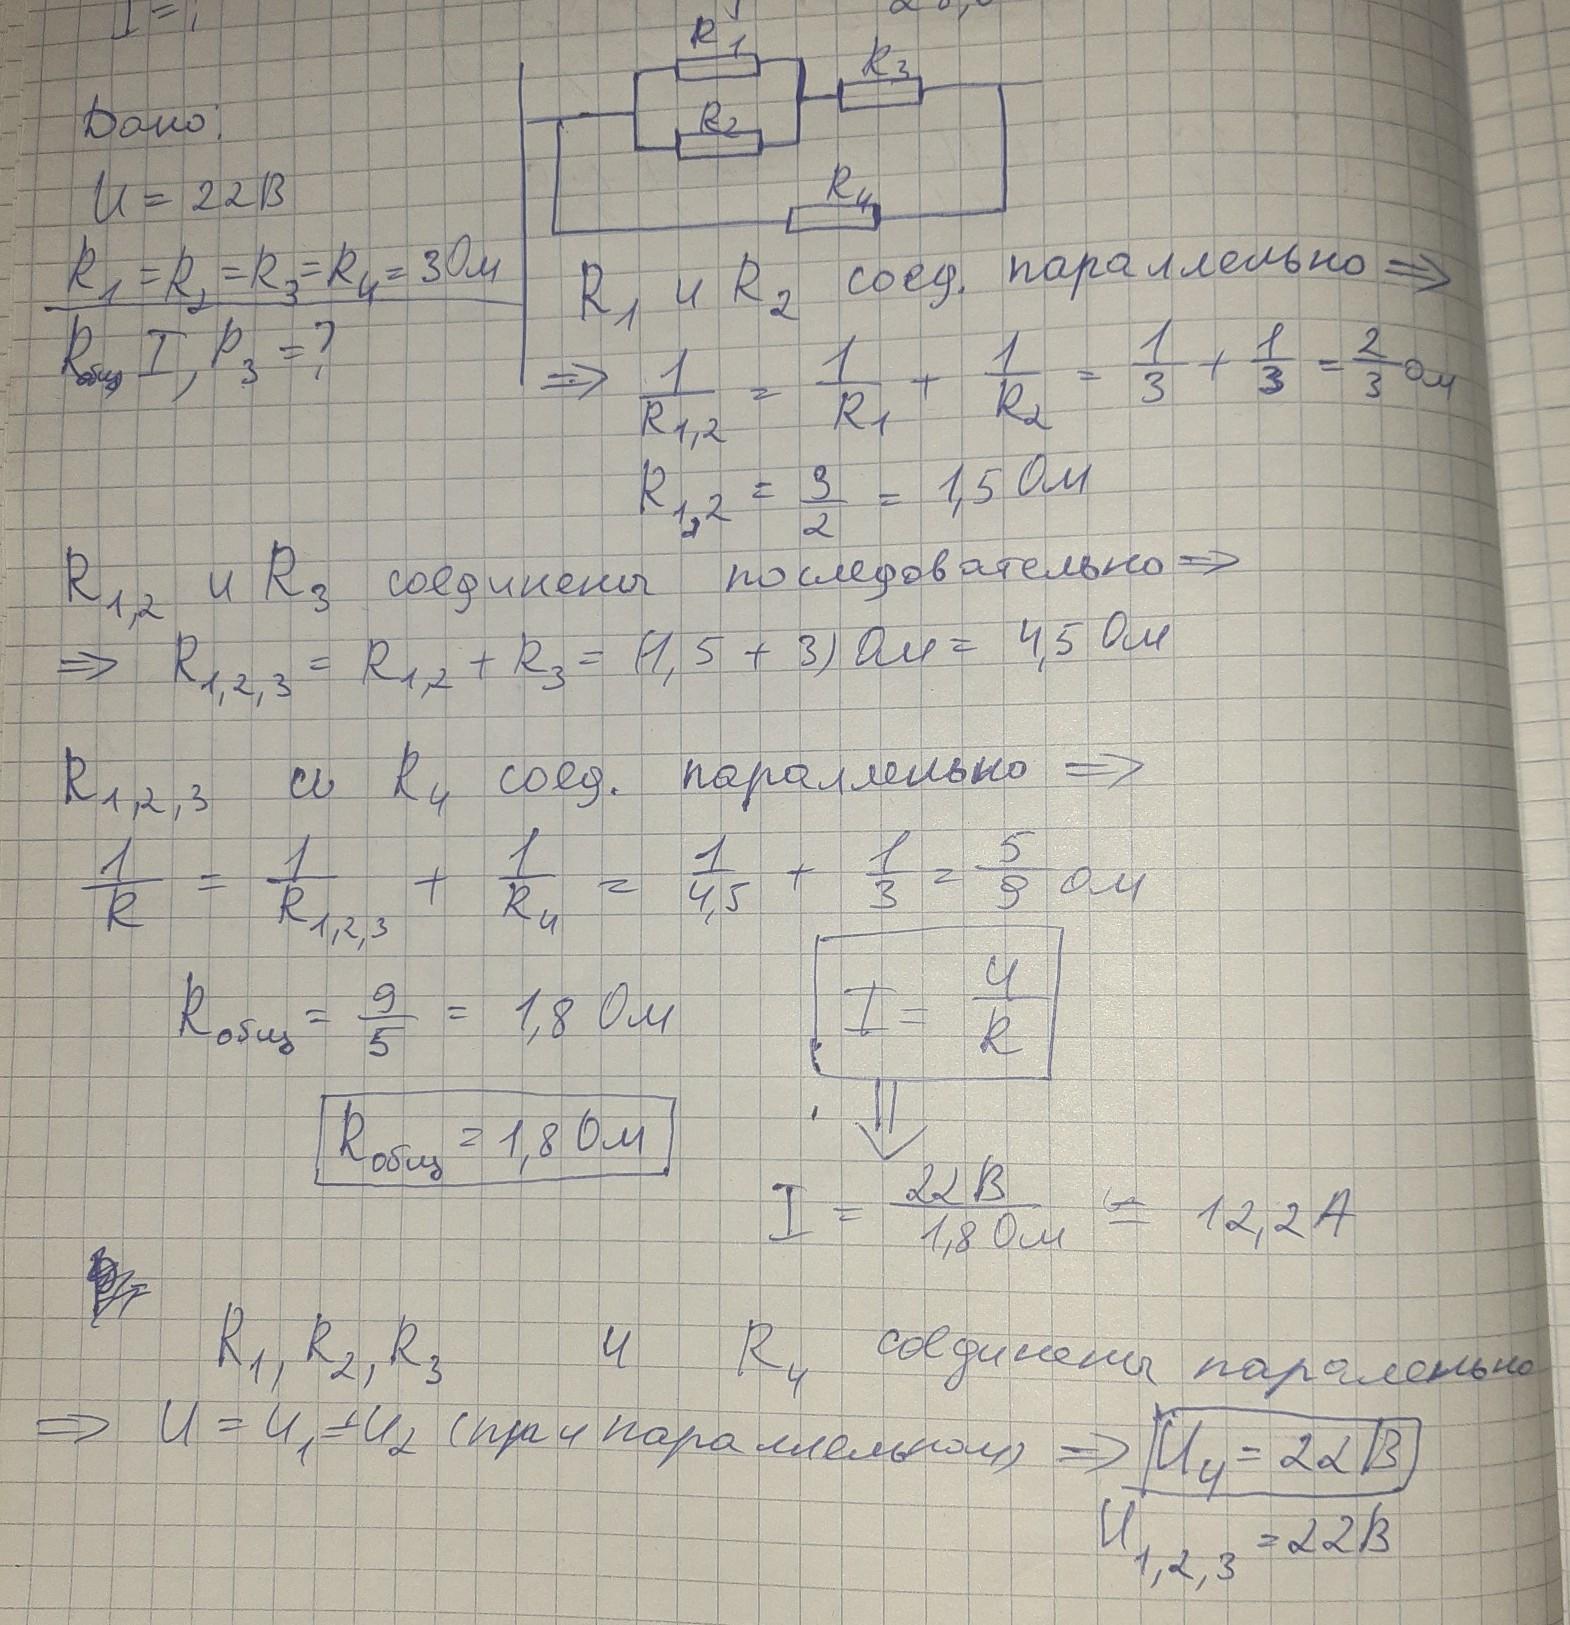 I = ?
R1
R3
Дано:
R2
U = 22В
R4
R1 = R2 = R3 = R4 = 3Ом
R1 и R2 соед. параллельно ⇒
Rобщ, I, P3 = ?
⇒ 1/R1,2 = 1/R1 + 1/R2 = 1/3 + 1/3 = 2/3 ом
R1,2 = 3/2 = 1,5 Ом
R1,2 и R3 соединены последовательно ⇒
⇒ R1,2,3 = R1,2 + R3 = (1,5 + 3) Ом = 4,5 Ом
R1,2,3 со R4 соед. параллельно ⇒
1/R = 1/R1,2,3 + 1/R4 = 1/4,5 + 1/3 = 5/9 ом
Rобщ = 9/5 = 1,8 Ом
I = U/R
Rобщ = 1,8 Ом
I = 22В/1,8 Ом ≃ 12,2 А
R1, R2, R3 и R4 соединены паралельно
⇒ U = U1 = U2 (при параллельном) ⇒ U4 = 22В
U1,2,3 = 22В